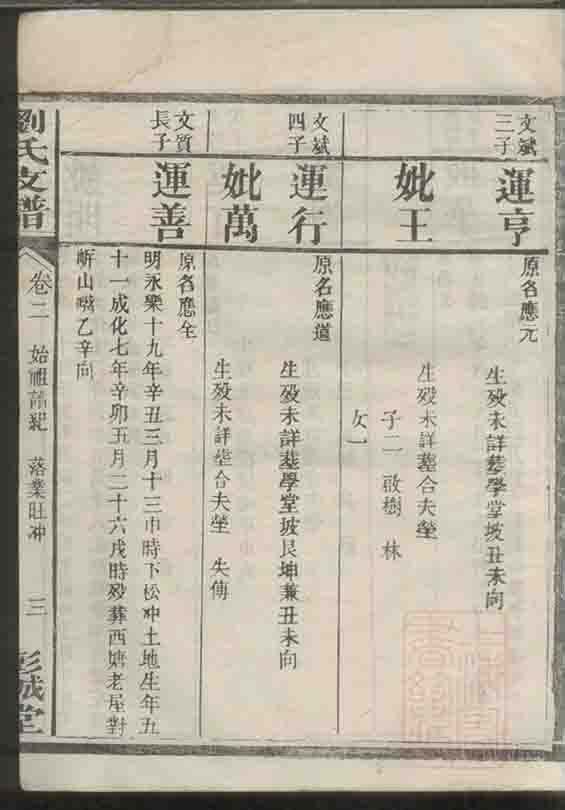 文斌三子
運亨
原名應元
生殁未詳墓學堂坡丑未向
妣王
生殁未詳墓合夫塋
子二 啟樹 林
女一
文斌四子
運行
原名應道
生殁未詳墓學堂坡艮坤兼丑未向
妣萬
生殁未詳墓合夫塋 失傳
文質長子
運善
原名應全
明永樂十九年辛丑三月十三申時下松冲土地生年五
十一成化七年辛卯五月二十六戌時殁葬西塘老屋對
岍山嘴乙辛向
劉氏支譜
卷二 始祖 落業旺冲
三
彭城堂